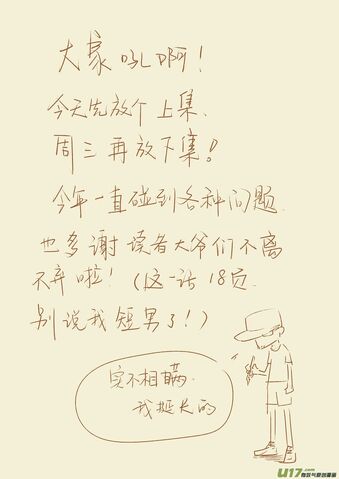 大家吼啊！
今天先放个上集、
周三再放下集！
今年一直碰到各种问题、
也多谢读者大爷们不离
不弃啦！（这一话18页、
别说我短男了！）
实不相瞒、
我挺长的
U17.com
有妖气原创漫画